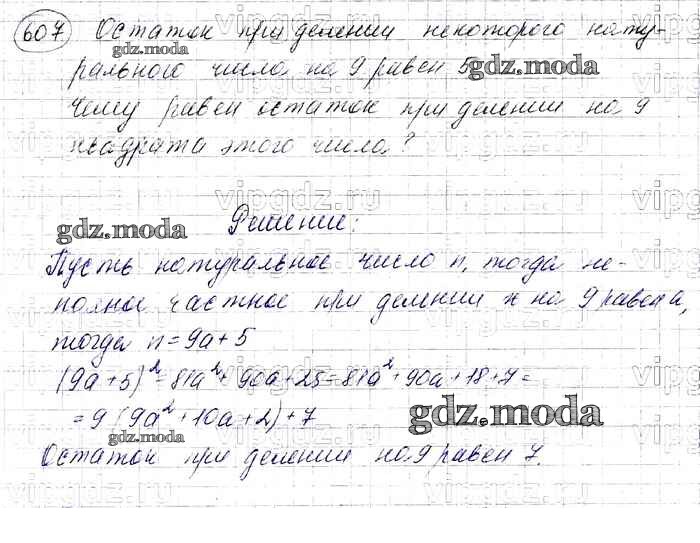 607 Остаток при делении некоторого нату-
рального числа на 9 равен 5.
Чему равен остаток при делении на 9
квадрата этого числа?
Решение:
Пусть натуральное число n, тогда не-
полное частное при делении n на 9 равен a,
тогда n=9a+5
(9a+5)²=81a²+90a+25=81a²+90a+18+7=
=9(9a²+10a+2)+7
Остаток при делении на 9 равен 7.
gdz.moda
gdz.moda
gdz.moda
gdz.moda
gdz.moda
vipgdz.ru